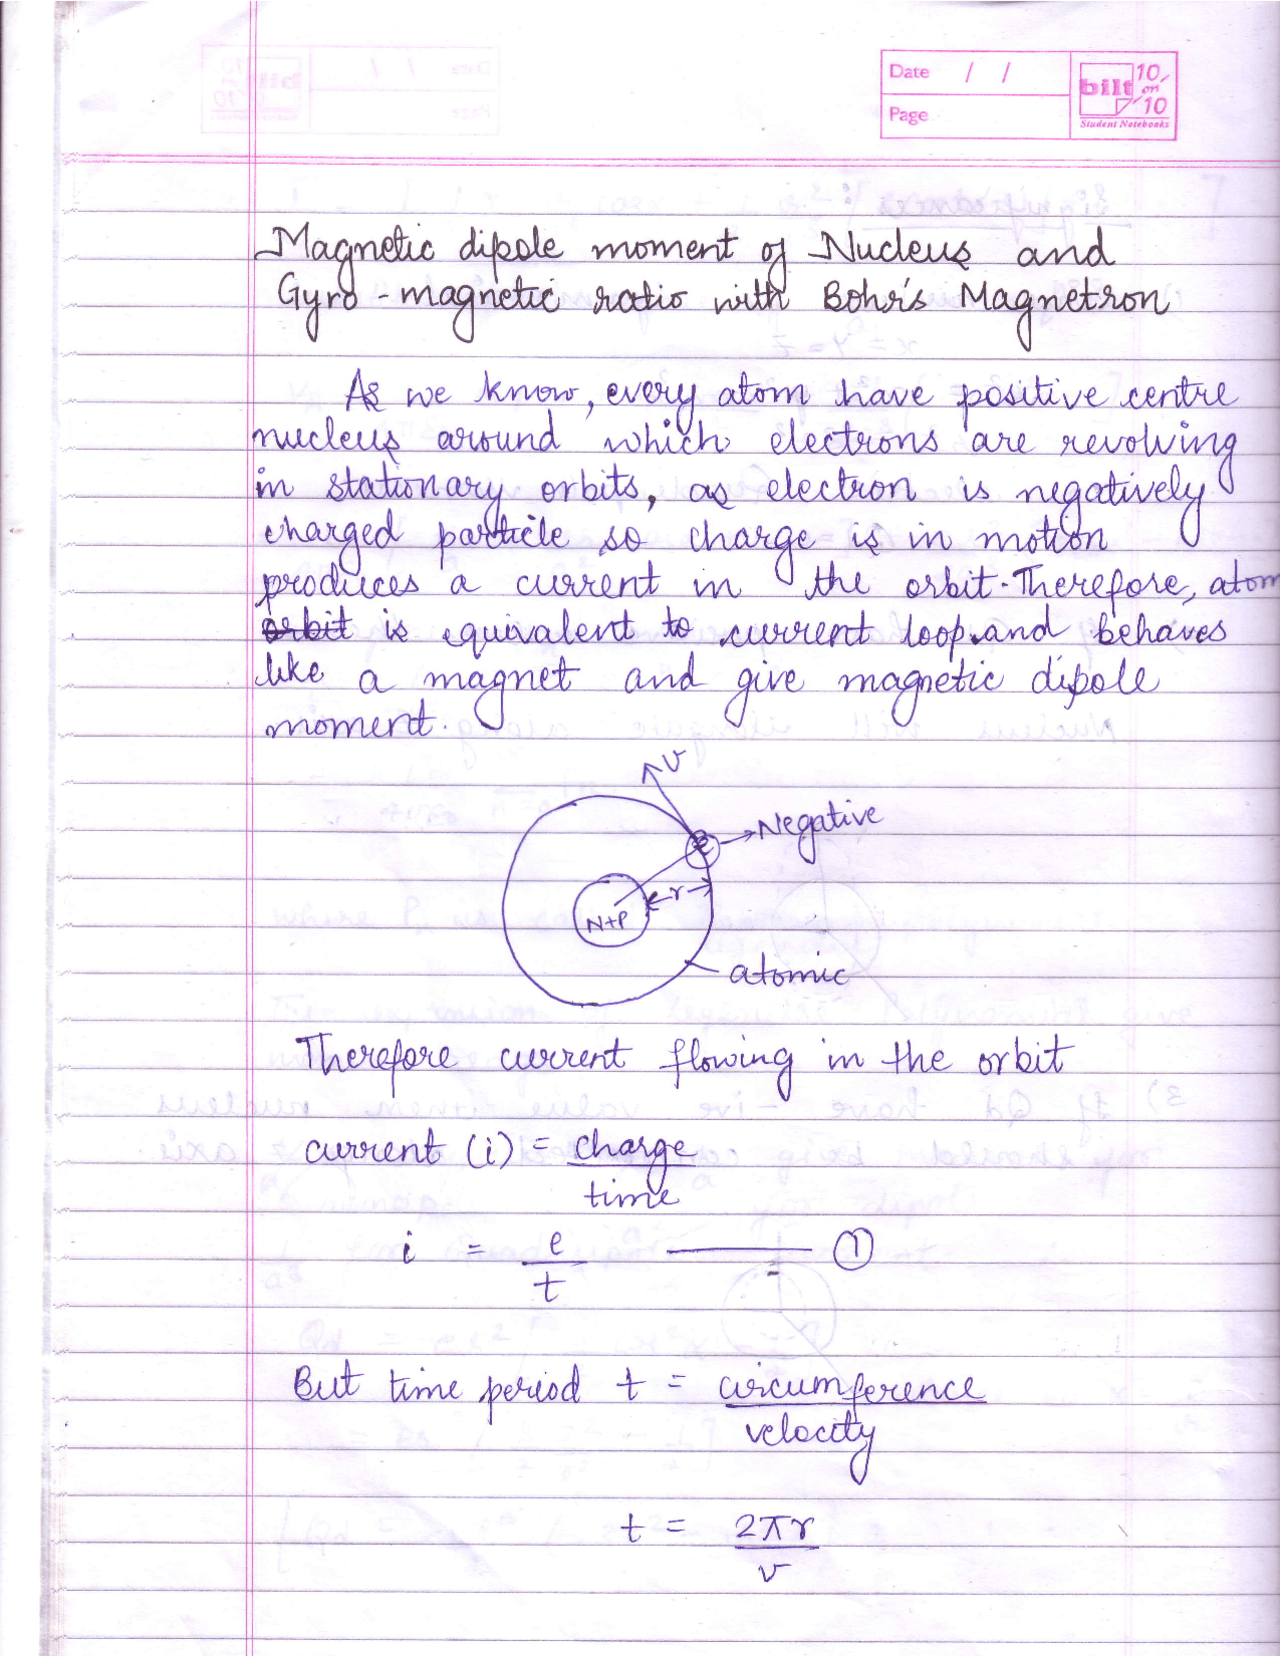 Date / /
Page
bilt 10 on 10
Student Notebooks
Magnetic dipole moment of Nucleus and
Gyro - magnetic ratio with Bohr's Magnetron
As we know, every atom have positive centre
nucleus around which electrons are revolving
in stationary orbits, as electron is negatively
charged particle so charge is in motion
produces a current in the orbit. Therefore, atom
orbit is equivalent to current loop and behaves
like a magnet and give magnetic dipole
moment.
v
e → Negative
r
N+P
atomic
Therefore current flowing in the orbit
current (i) = charge
time
i = e ——— ①
t
But time period t = circumference
velocity
t = 2πr
v